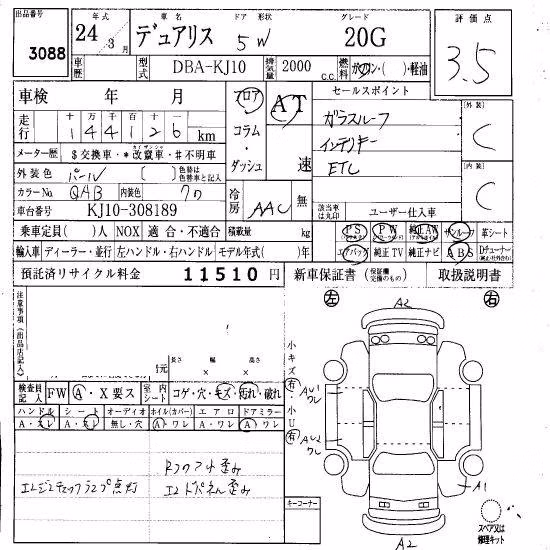 出品番号 3088
年式 24年3月
車名 デュアリス
ドア 形状 5W
グレード 20G
評価点 3.5
車歴
型式 DBA-KJ10
排気量 2000 C.C.
燃料 ガソリン・( )・軽油
車検 年 月
走行 十万千百十一
144126 km
メーター歴 $交換車・*改竄車・#不明車
外装色 パール [ ] 色替は色替車と記入
カラーNo. QAB 内装色 クロ
車台番号 KJ10-308189
フロア・コラム・ダッシュ
AT 速
冷房 AAC 無
セールスポイント
ガラスルーフ
インテリキー
ETC
該当車は丸印 ユーザー仕入車
[外装] C
[内装] C
乗車定員( )人 NOX 適合・不適合 積載量 kg
PS PW 純正AW サンルーフ 革シート
輸入車 ディーラー・並行 左ハンドル・右ハンドル モデル年式( )年
エアバッグ 純正TV 純正ナビ ABS Dチューナー
預託済リサイクル料金 11510円
新車保証書 (保証欄交換のもの) 取扱説明書
注意事項(出品店記入)
長さ 幅 高さ
× ×
検査員記入 FW A・X要ス 室内シート コゲ・穴・キズ・汚れ・破れ
ハンドル シート オーディオ ホイル(カバー) エアロ ドアミラー
A・スレ A・スレ 無し・穴 A・ワレ A・ワレ A・ワレ
Rフロア歪み
エンジンチェックランプ点灯 エンドパネル歪み
小キズ 有・小U 有
キーコーナー
左 右
A2
AU1
ワレ
AU2
ワレ
A1
A2
スペア又は修理キット